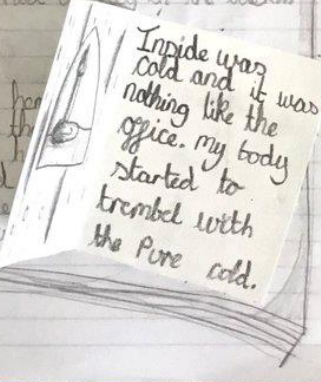 Inside was
cold and it was
nothing like the
office. my body
started to
trembel with
the Pure cold.